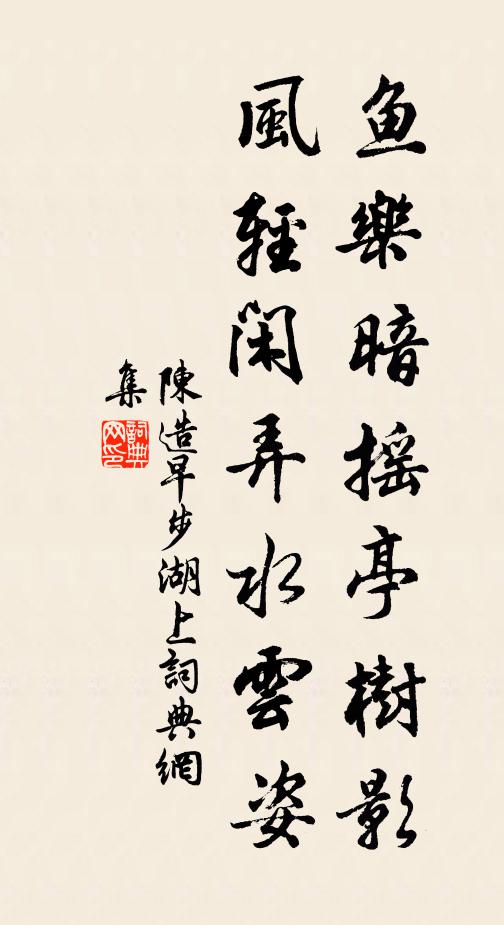 鱼樂暗摇亭樹影
風輕閑弄水雲姿
陳造早步湖上詞典網
集
詞典
网印